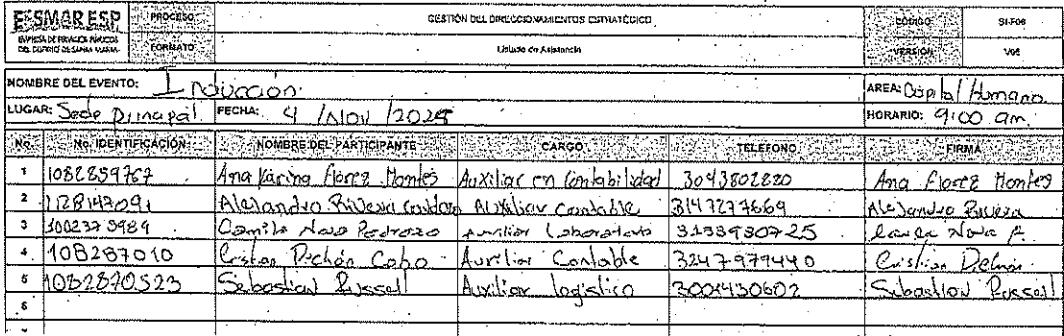 ESSMAR ESP PROCESO GESTIÓN DEL DIRECCIONAMIENTOS ESTRATÉGICO CODIGO SI-F06
EMPRESA DE SERVICIOS PÚBLICOS
DEL DISTRITO DE SANTA MARTA FORMATO Listado de Asistencia VERSIÓN V05
NOMBRE DEL EVENTO: Inducción. AREA: Capital Humano
LUGAR: Sede principal FECHA: 4 /Nov /2025 HORARIO: 9:00 am.
No. No. IDENTIFICACIÓN NOMBRE DEL PARTICIPANTE CARGO TELEFONO FIRMA
1 1082859767 Ana Karina Florez Montes Auxiliar en Contabilidad 3043802820 Ana Florez Montes
2 1128147091 Alejandro Rivera Auxiliar Contable 3147277669 Alejandro Rivera
3 1002375989 Camila Nova Pedrozo Auxiliar Laboratorio 3133930725 Nova P.
4 108287010 Cristian Cobo Auxiliar Contable 3247979440 Cristian
5 1082870523 Sebastian Russell Auxiliar logistico 3001430602 Sebastian Russell
6